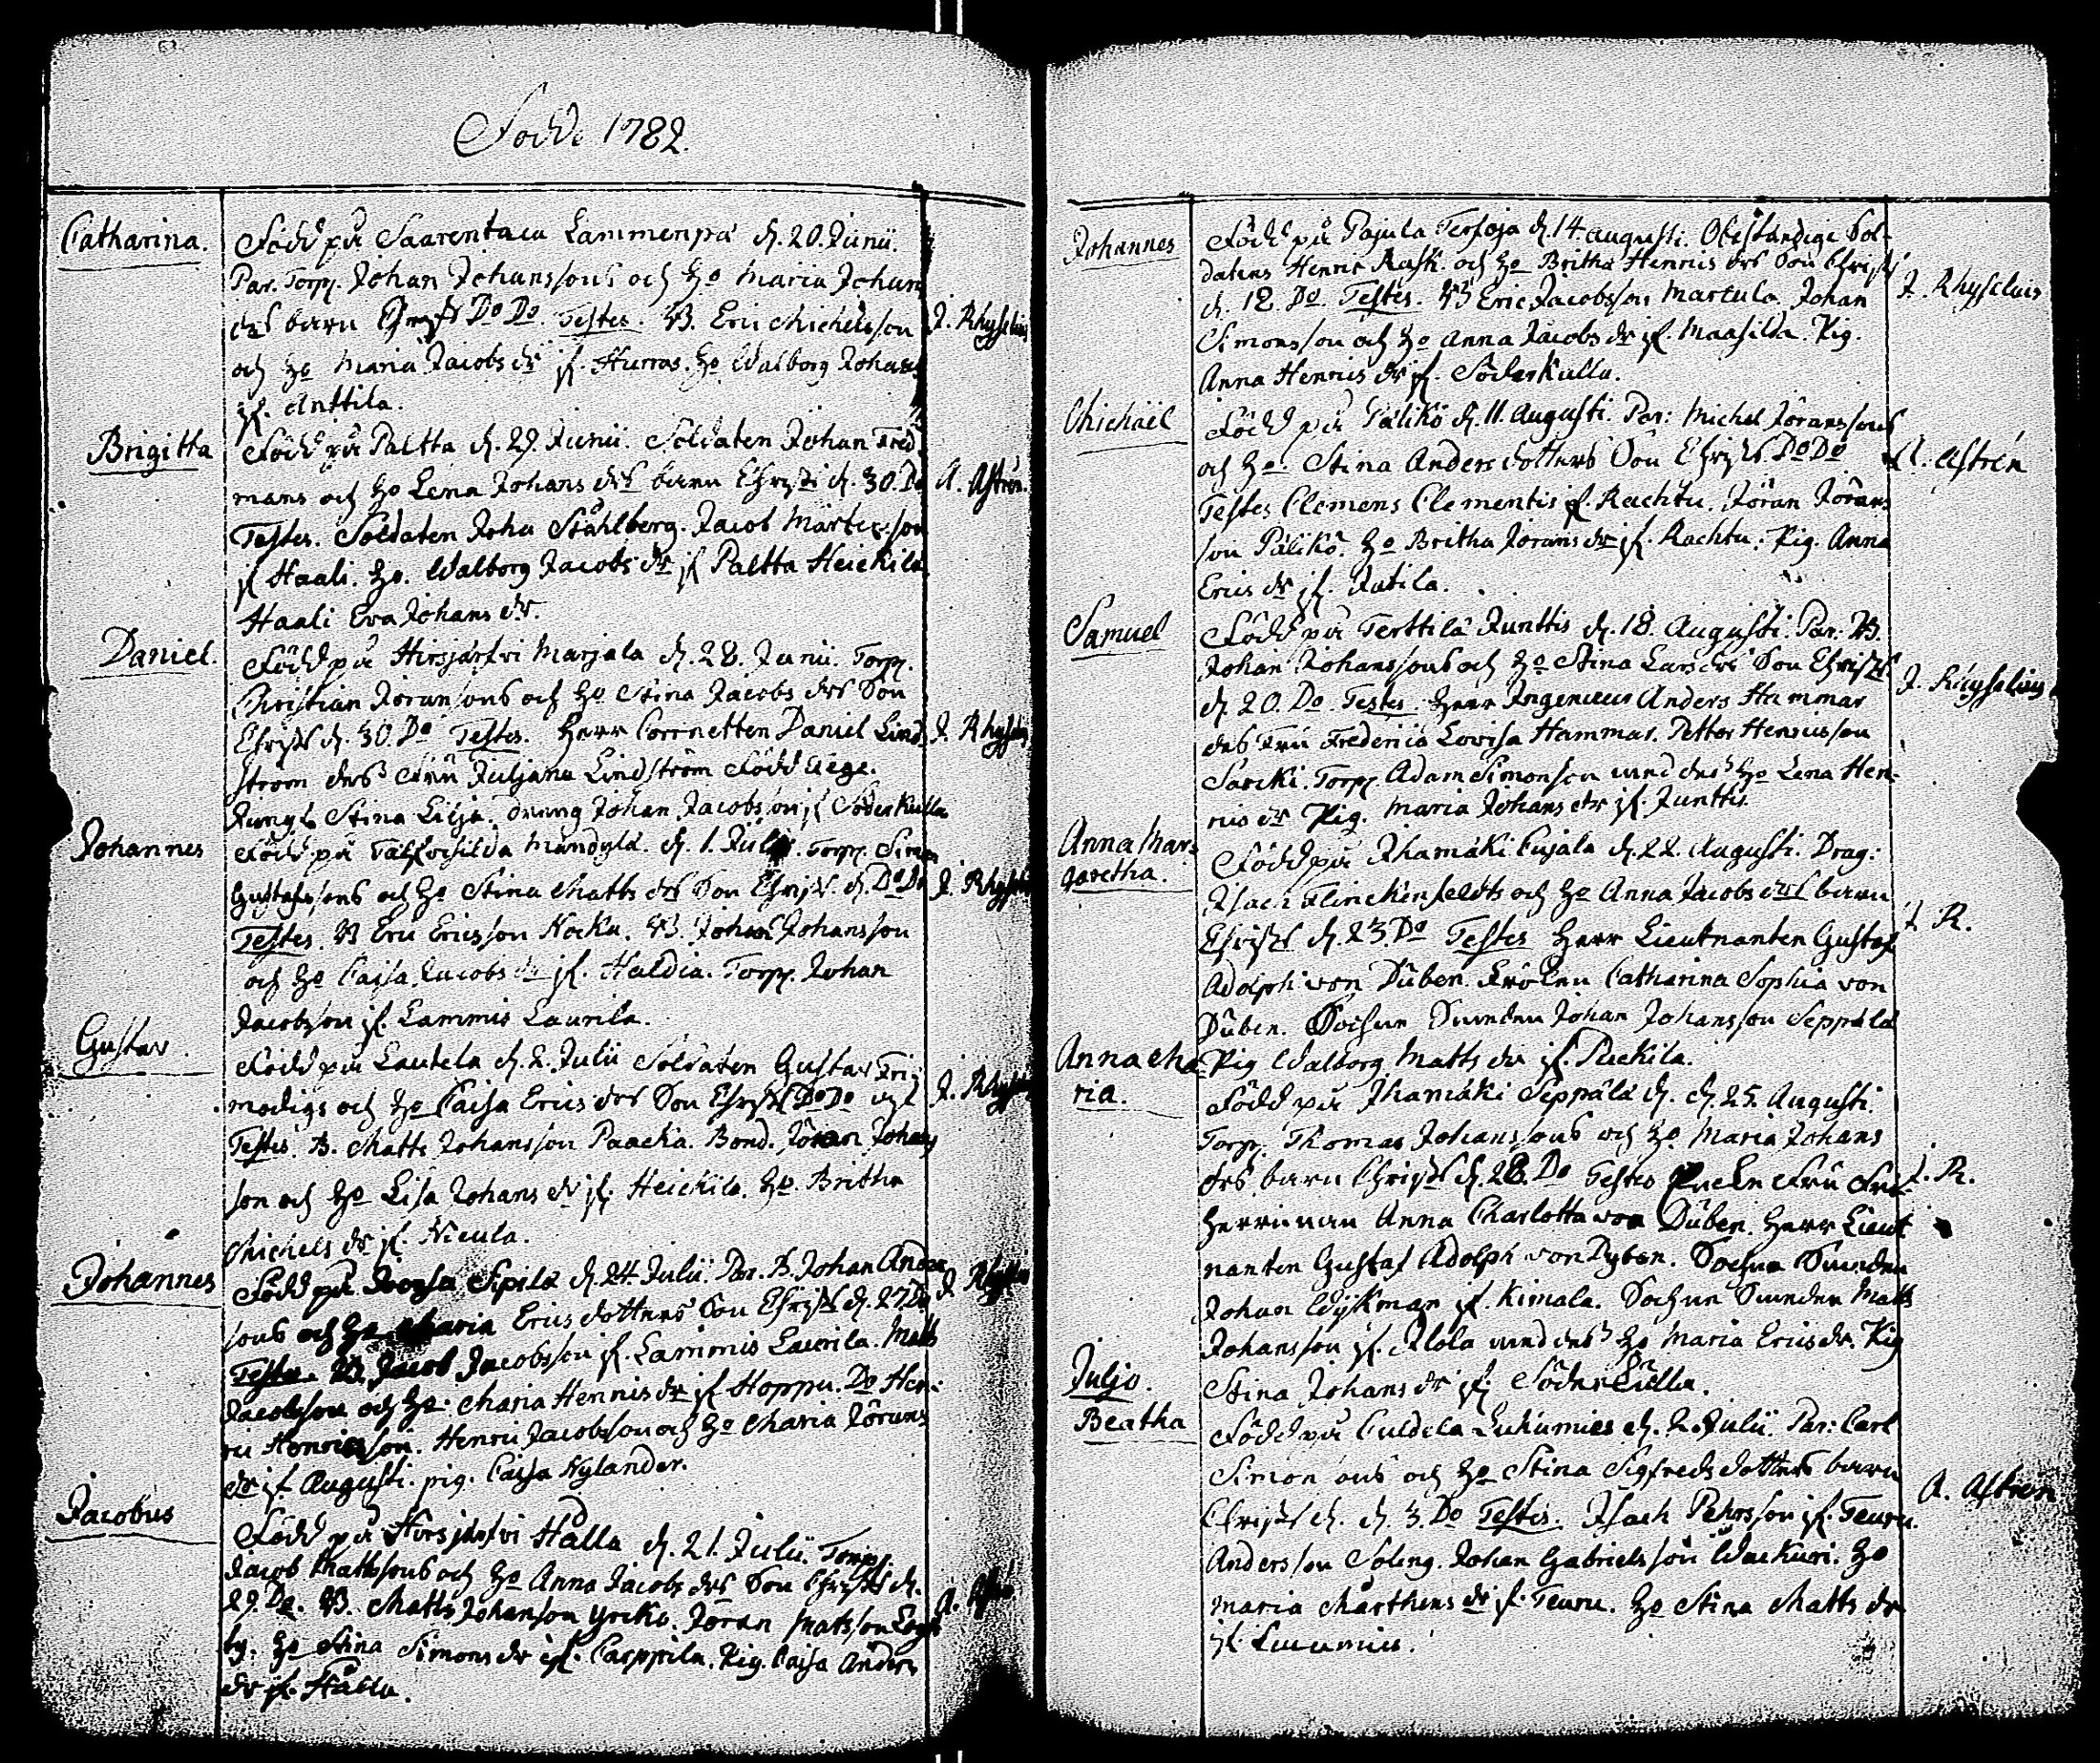 Födde 1782.
Catharina.
Född på Saarentaca Lammenpä d. 20. Junii.
Par. Torp. Johan Johanssons och Ho Maria Johans
drs barn Christ Do Do. Testes. B. Eric Michelsson
J. Rhyselius
och Ho Maria Jacobs dr if. Hurras. Ho Walborg Johans
if. Anttila.
Brigitta
Född på Paltta d. 29. Junii. Soldaten Johan Fred-
mans och Ho Lena Johans drs barn Christ d. 30. Do
A. Astrén.
Testes. Soldaten Joh Ståhlberg. Jacob Mårtensson
if Haali. Ho. Walborg Jacobs dr if Paltta Heickila
Haali Eva Johans dr.
Daniel.
Född på Hirsjärfvi Marjala d. 28. Junii. Torp.
Christian Joransons och Ho Stina Jacobs drs Son
Christ d. 30. Do Testes. Herr Cornetten Daniel Lind-
J. Rhyselius
ström dess Fru Juljana Lindström Född Aege.
Jungfr Stina Lilja. dreng Johan Jacobsson if Söderkulla
Johannes
Född på d. 1. Julii. Torp. Simon
Gustafssons och Ho Stina Matts drs Son Christ d. Do Do
J. Rhyselius
Testes. B Eric Ericsson Nocku. B. Johan Johansson
och Ho Caisa Jacobs dr if. Haldia. Torp. Johan
Jacobsson if. Lammis Laurila.
Gustav.
Född på Lautela d. 2. Julii Soldaten Gustav Fri-
modigs och Ho Caisa Erics drs Son Christ Do Do
J. Rhyselius
Testes. B. Matts Johansson Paacka. Bond. Jöran Johans
son och Ho Lisa Johans dr if. Heickila. Ho. Britha
Michels dr if. Nicula.
Johannes
Född på Sipilä d. 24 Julii. Par. B. Johan Anders
J. Rhyselius
sons och Ho Maria Erics dotters Son Christ d. 27 Do
Testes. B. Jacob Jacobsson if. Lammis Laurila. Matts
Jacobsson och Ho. Maria Henrics dr if Hoppu. Do Hen-
ric Henricsson. Henric Jacobsson och Ho Maria Jörans
dr if Augusti. pig. Caisa Nylander.
Jacobus
Född på Hirsjärfvi Hålla d. 21. Julii. Torp.
Jacob Mattssons och Ho Anna Jacobs drs Son Christ d.
29. Do. B. Matts Johanson Yrckö. Jöran Matsson
A. Astrén
by. Ho Stina Simons dr if. Carppila. Pig. Caisa Anders
dr if. Hålla.
Johannes
Född på Pajula Tersoja d. 14. Augusti. Obeständige Sol-
datens Henric Rask. och Ho Britha Henrics drs Son Christ
J. Rhyselius
d. 18. Do Testes. B Eric Jacobsson Martula. Johan
Simonsson och Ho Anna Jacobs dr if. Maasilda. Pig.
Anna Henrics dr if. Söderkulla.
Michaël
Född på Pälikö d. 11. Augusti. Par: Michel Joranssons
och Ho. Stina Anders dotters Son Christ Do Do
A. Astrén
Testes Clemens Clementis if. Rachtu. Jöran Jörans
son Pälikö. Ho Britha Jorans dr if. Rachtu. Pig. Anna
Erics dr if. Jutila.
Samuel
Född på Terttilä Junttis d. 18. Augusti. Par: B.
Johan Johanssons och Ho Stina Lars drs Son Christ
J. Rhyselius
d. 20. Do Testes. Herr Ingenieur Anders Hammar
des Fru Frederica Lovisa Hammar. Petter Henricsson
Sarcki. Torp. Adam Simonson med des Ho Lena Hen-
rics dr Pig. Maria Johans dr if. Junttis.
Anna Mar-
garetha.
Född på Jhamäki Cujala d. 22. Augusti. Drag:
Isach Flinckenfeldts och Ho Anna Jacobs drs barn
Christ d. 23. Do Testes Herr Lieutnanten Gustaf
J. R.
Adolph von Düben. Fröken Catharina Sophia von
Düben. Sochne Smeden Johan Johansson Seppälä
Pig Walborg Matts dr if. Packila.
Anna Ma
ria.
Född på Jhamäki Seppälä d. d. 25. Augusti.
Torp. Thomas Johanssons och Ho Maria Johans
drs barn Christ d. 28. Do Testes Fru Fri-
J. R.
herrinnan Anna Charlotta von Düben. Herr Lieut
nanten Gustaf Adolph von Dyben. Sochne Smeden
Johan Wijkman if. Kimala. Sochne Smeden Matts
Johansson if. Alola med des Ho Maria Erics dr. Pig
Stina Johans dr if. Söderkulla.
Juljo.
Beatha
Född på Culdela Luhumies d. 2. Julii. Par: Carl
Simonsons och Ho Stina Sigfreds dotters barn
Christ d. d. 3. Do Testes. Isach Pehrsson if. Teuru.
A. Astrén
Andersson Soleng. Johan Gabrielsson Wackuri. Ho
Maria Mårthens dr if. Teuru. Ho Stina Matts dr
if. Luumies.